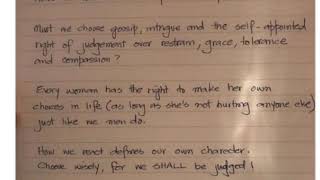 Must we choose gossip, intrigue and the self-appointed
right of judgement over restrain, grace, tolerance
and compassion?
Every woman has the right to make her own
choices in life (as long as she's not hurting anyone else)
just like we men do.
How we react defines our own character.
Choose wisely, for we SHALL be judged!